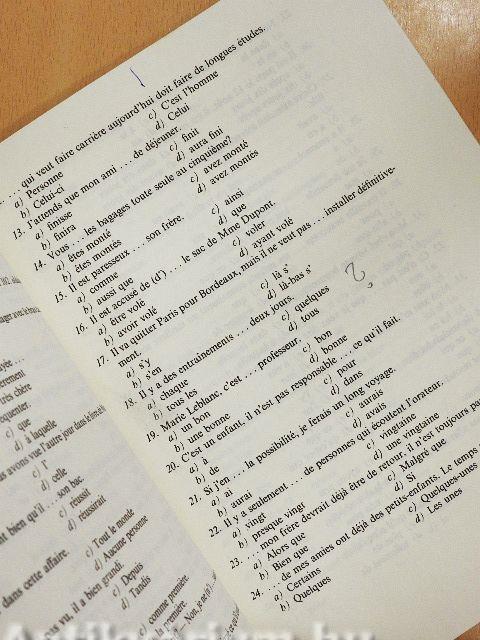 . . . qui veut faire carrière aujourd'hui doit faire de longues études.
a) Personne
c) C'est l'homme
b) Celui-ci
d) Celui
13. J'attends que mon ami . . . de déjeuner.
a) finisse
c) finit
b) finira
d) aura fini
14. Vous . . . les bagages toute seule au cinquième?
a) êtes monté
c) avez monté
b) êtes montés
d) avez montés
15. Il est paresseux . . . son frère.
a) comme
c) ainsi
b) aussi que
d) que
16. Il est accusé de (d') . . . le sac de Mme Dupont.
a) être volé
c) voler
b) avoir volé
d) ayant volé
17. Il va quitter Paris pour Bordeaux, mais il ne veut pas . . . installer définitive-
ment.
a) s'y
c) là s'
b) s'en
d) là-bas s'
18. Il y a des entraînements . . . deux jours.
a) chaque
c) quelques
b) tous les
d) tous
19. Marie Leblanc, c'est . . . professeur.
a) un bon
c) bon
b) une bonne
d) bonne
20. C'est un enfant, il n'est pas responsable . . . ce qu'il fait.
a) à
c) pour
b) de
d) dans
21. Si j'en . . . la possibilité, je ferais un long voyage.
a) ai
c) aurais
b) aurai
d) avais
22. Il y a seulement . . . de personnes qui écoutent l'orateur.
a) vingt
c) vingtaine
b) presque vingt
d) une vingtaine
23. . . . mon frère devrait déjà être de retour, il n'est toujours pa
a) Alors que
c) Malgré que
b) Bien que
d) Si
24. . . . de mes amies ont déjà des petits-enfants. Le temps
a) Certains
c) Quelques-unes
b) Quelques
d) Les unes
très chère
c) que
d) à laquelle
c) l'
d) celle
nt bien qu'il . . . son bac.
c) réussit
d) réussirait
dans cette affaire.
c) Tout le monde
d) Aucune personne
vu, il a bien grandi.
c) Depuis
d) Tandis
c) comme première.
la première.